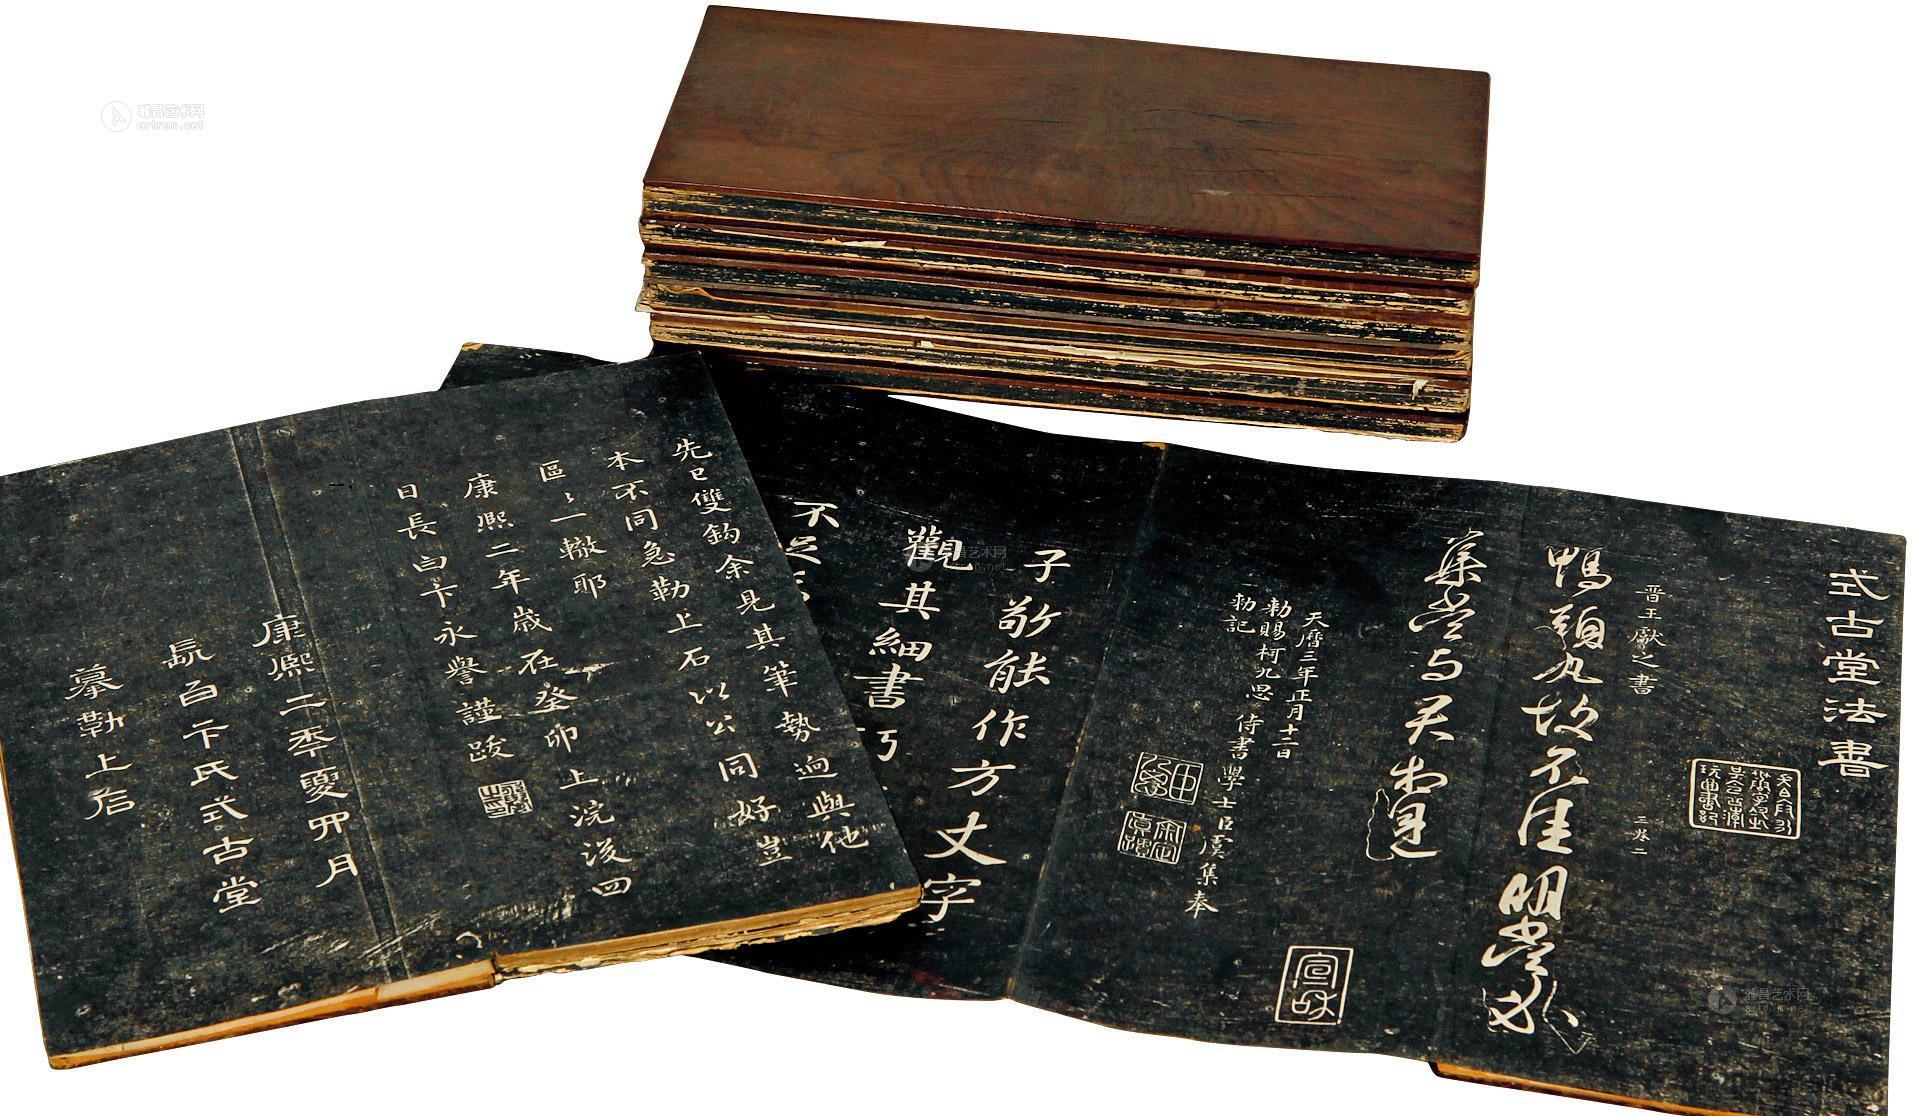 雅昌艺术网
artron.net
式古堂法書
晋王獻之書
三卷二
鴨頭丸故不佳明當必
集當与君相見
天曆三年正月十二日
勑賜柯九思侍書學士臣虞集奉
勑記
宣和
子敬能作方丈字
觀其細書巧
不
先已雙鈎余見其筆勢迥與他
本不同急勒上石以公同好豈
區〻一轍耶
康熙二年歲在癸卯上浣後四
日長白卞永譽謹跋
康熙二季夏四月
長白卞氏式古堂
摹勒上石
雅昌艺术网
artron.net
雅昌艺术网
artron.net